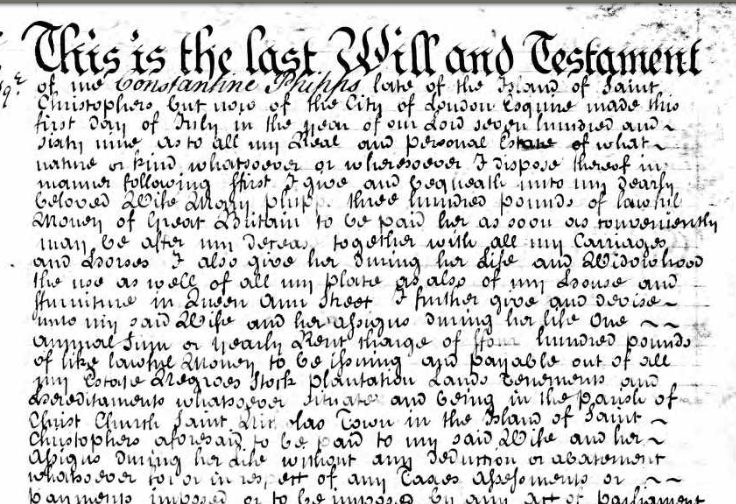 This is the last Will and Testament
of me Constantine Phipps late of the Island of Saint
Christophers but now of the City of London Esquire made this
first day of July in the year of our Lord seven hundred and
sixty nine as to all my Real and personal Estate of what
nature or kind whatsoever or wheresoever I dispose thereof in
manner following ffirst I give and bequeath unto my dearly
beloved Wife Mary phipps three hundred pounds of lawful
Money of Great Britain to be paid her as soon as conveniently
may be after my deceas together with all my Carriages
and Horses I also give her during her Life and Widowhood
the use as well of all my plate as also of my House and
ffurniture in Queen Ann Street I further give and devise
unto my said Wife and her assigns during her life One
annual Sum or yearly Rent charge of hundred pounds
of like lawful Money to be issuing and payable out of all
my Estate Negroes Stock plantation Lands Tenements and
Hereditaments whatsoever situate and being in the parish of
Christ Church Saint Nicholas Town in the Island of Saint
Christophers aforesaid to be paid to my said Wife and her
Assigns during her Life without any deduction or abatement
whatsoever for or in respect of any Taxes Assessments or
payments imposed or to be imposed by any Act of Parliament